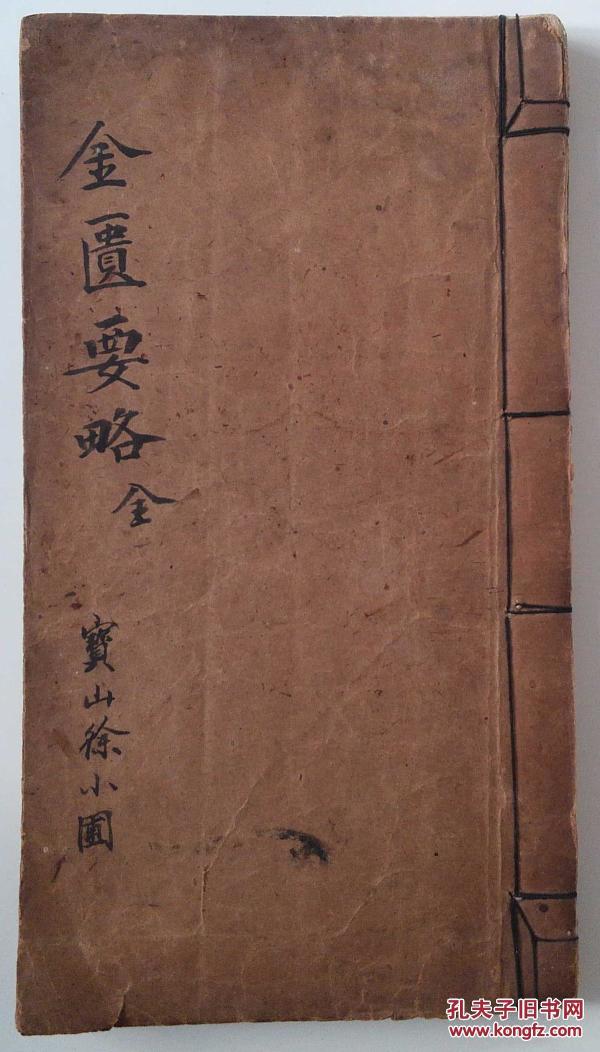 金匱要略 全
寶山徐小圃
孔夫子旧书网
www.kongfz.com